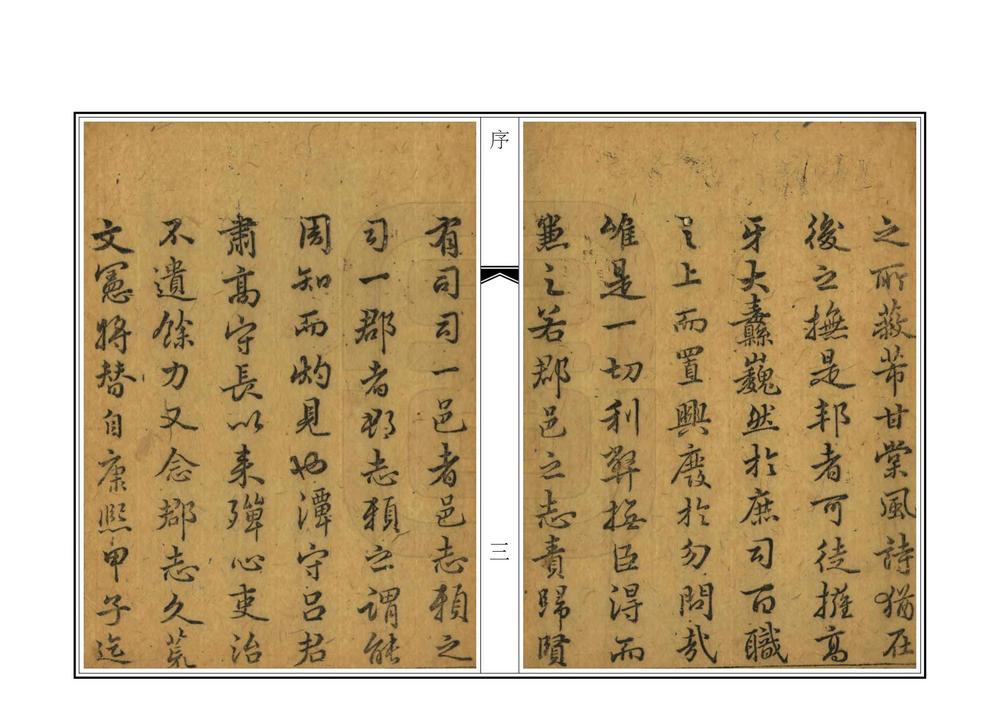 之所蔽芾甘棠風詩猶在
後之撫是邦者可徒擁高
牙大纛巍然於庶司百職
之上而置興廢於勿問哉
惟是一切利弊撫臣得而
兼之若郡邑之志責歸賢
序
三
有司司一邑者邑志賴之
司一郡者郡志賴之謂能
周知而灼見也潭守呂君
肅高守長以来殫心吏治
不遺餘力又念郡志久荒
文憲將替自康熙甲子迄